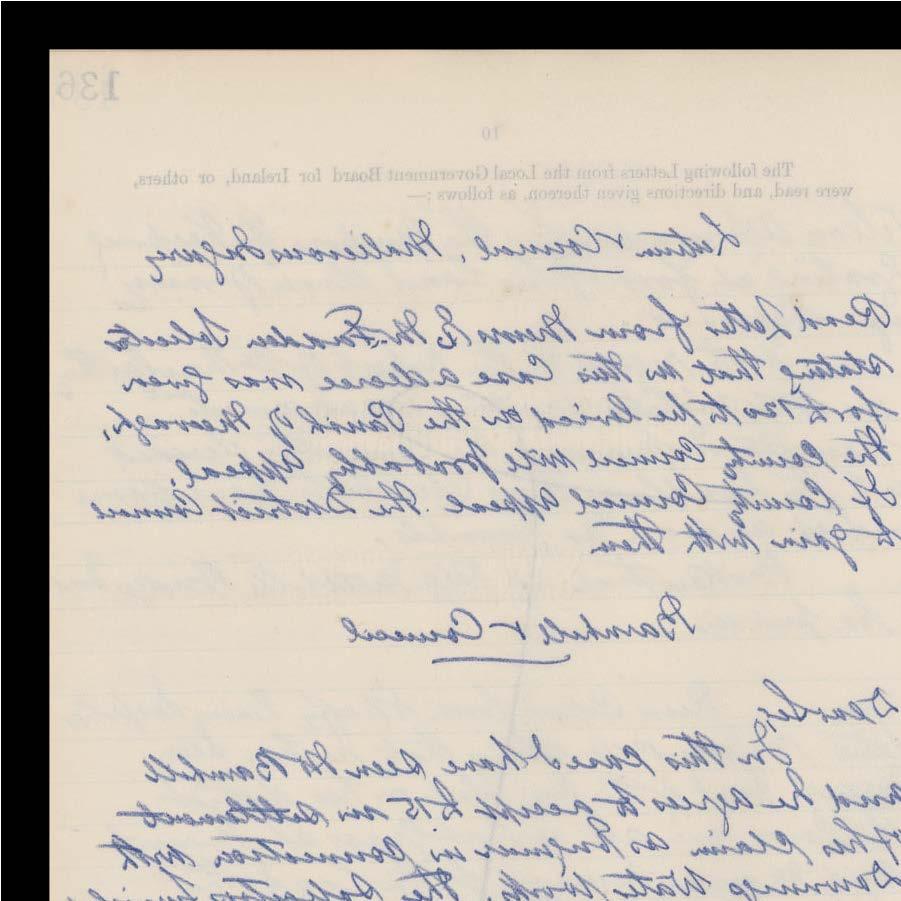 136
10
The following Letters from the Local Government Board for Ireland, or others,
were read, and directions given thereon, as follows :—
v Council, Malicious Injury
Read Letter from E. McFadden Solicitor
stating that in this Case a decree was given
for £120 to be levied on the Parish of Mevagh,
The County Council will probably Appeal.
If County Council Appeal the District Council
to join with them
Barnhill v Council
Dear Sir,
In this case I have seen Mr Barnhill
and he agrees to accept £15 in settlement
of his claim as Engineer in connection with
Downings Water Works. The